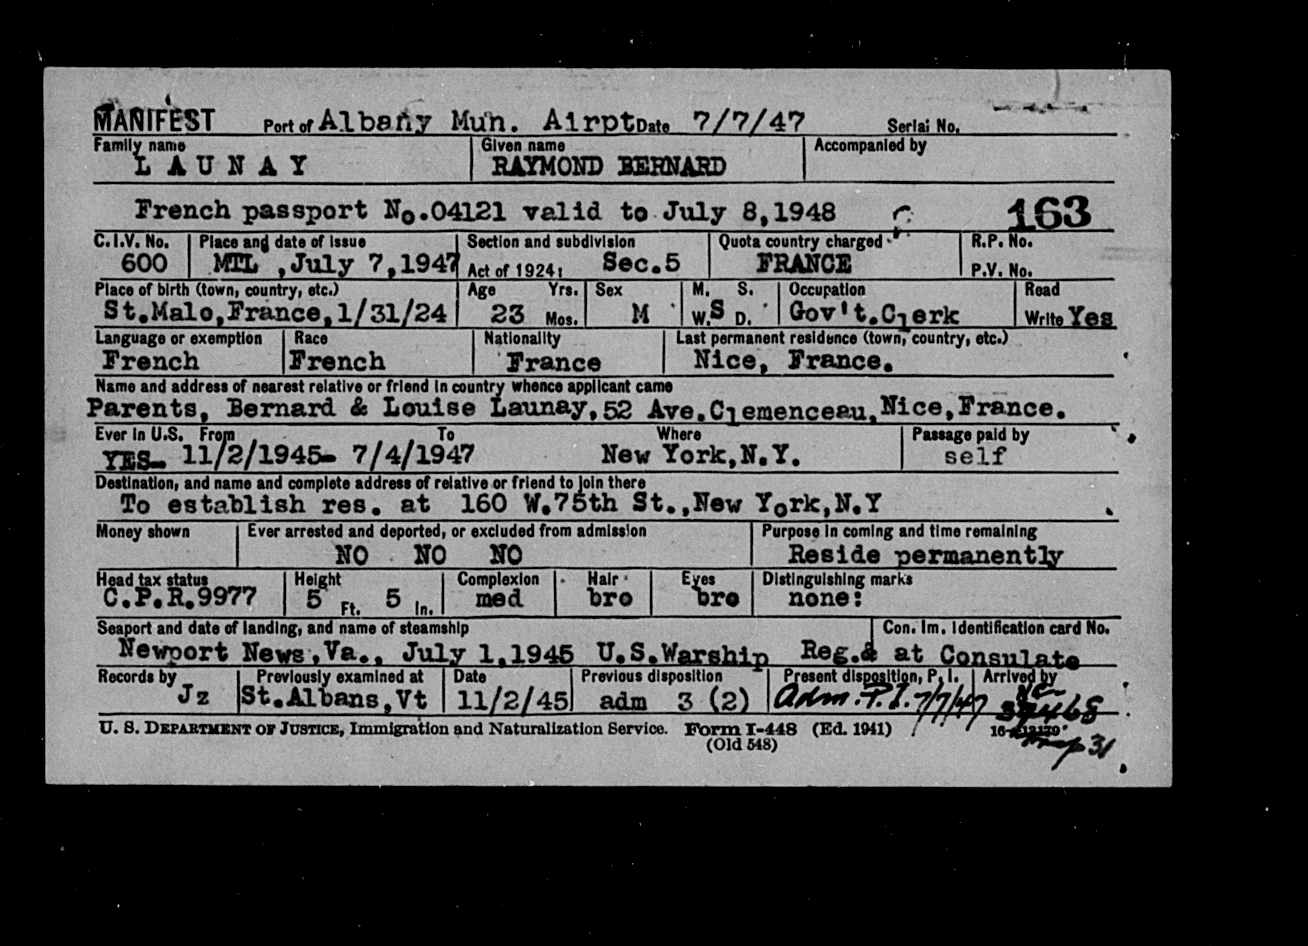 MANIFEST Port of Albany Mun. Airpt Date 7/7/47 Serial No.
Family name Given name Accompanied by
LAUNAY RAYMOND BERNARD
French passport No.04121 valid to July 8,1948 163
C.I.V. No. Place and date of issue Section and subdivision Quota country charged R.P. No.
600 MTL ,July 7,1947 Act of 1924: Sec.5 FRANCE P.V. No.
Place of birth (town, country, etc.) Age Yrs. Sex M. S. Occupation Read
St.Malo,France,1/31/24 23 Mos. M W.S D. Gov't.Clerk Write Yes
Language or exemption Race Nationality Last permanent residence (town, country, etc.)
French French France Nice, France.
Name and address of nearest relative or friend in country whence applicant came
Parents, Bernard & Louise Launay,52 Ave.Clemenceau,Nice,France.
Ever in U.S. From To Where Passage paid by
YES- 11/2/1945- 7/4/1947 New York,N.Y. self
Destination, and name and complete address of relative or friend to join there
To establish res. at 160 W.75th St.,New York,N.Y
Money shown Ever arrested and deported, or excluded from admission Purpose in coming and time remaining
NO NO NO Reside permanently
Head tax status Height Complexion Hair Eyes Distinguishing marks
C.P.R.9977 5 Ft. 5 In. med bro bro none:
Seaport and date of landing, and name of steamship Con. Im. Identification card No.
Newport News,Va., July 1,1945 U.S.Warship Reg.& at Consulate
Records by Previously examined at Date Previous disposition Present disposition, P. I. Arrived by
Jz St.Albans,Vt 11/2/45 adm 3 (2) Adm. P.I. 7/7/47
U. S. DEPARTMENT OF JUSTICE, Immigration and Naturalization Service. Form I-448 (Ed. 1941)
(Old 548)